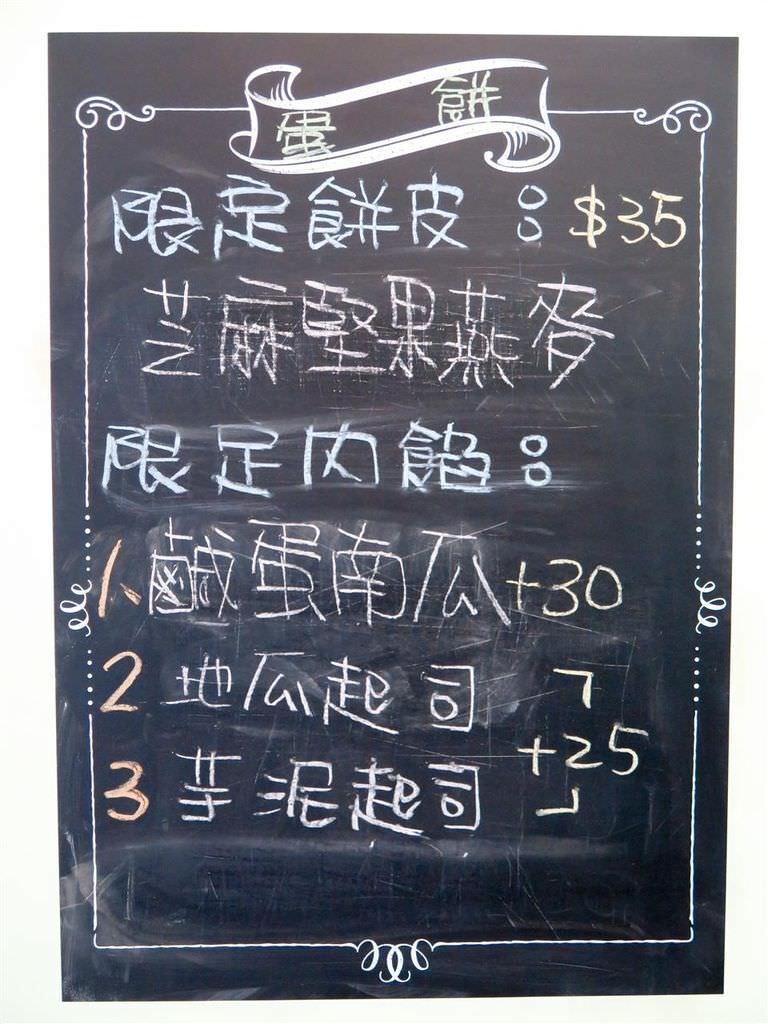 蛋餅
限定餅皮：$35
芝麻堅果燕麥
限定內餡：
1.鹹蛋南瓜+30
2 地瓜起司 ㄱ
+25
3 芋泥起司 ㄴ